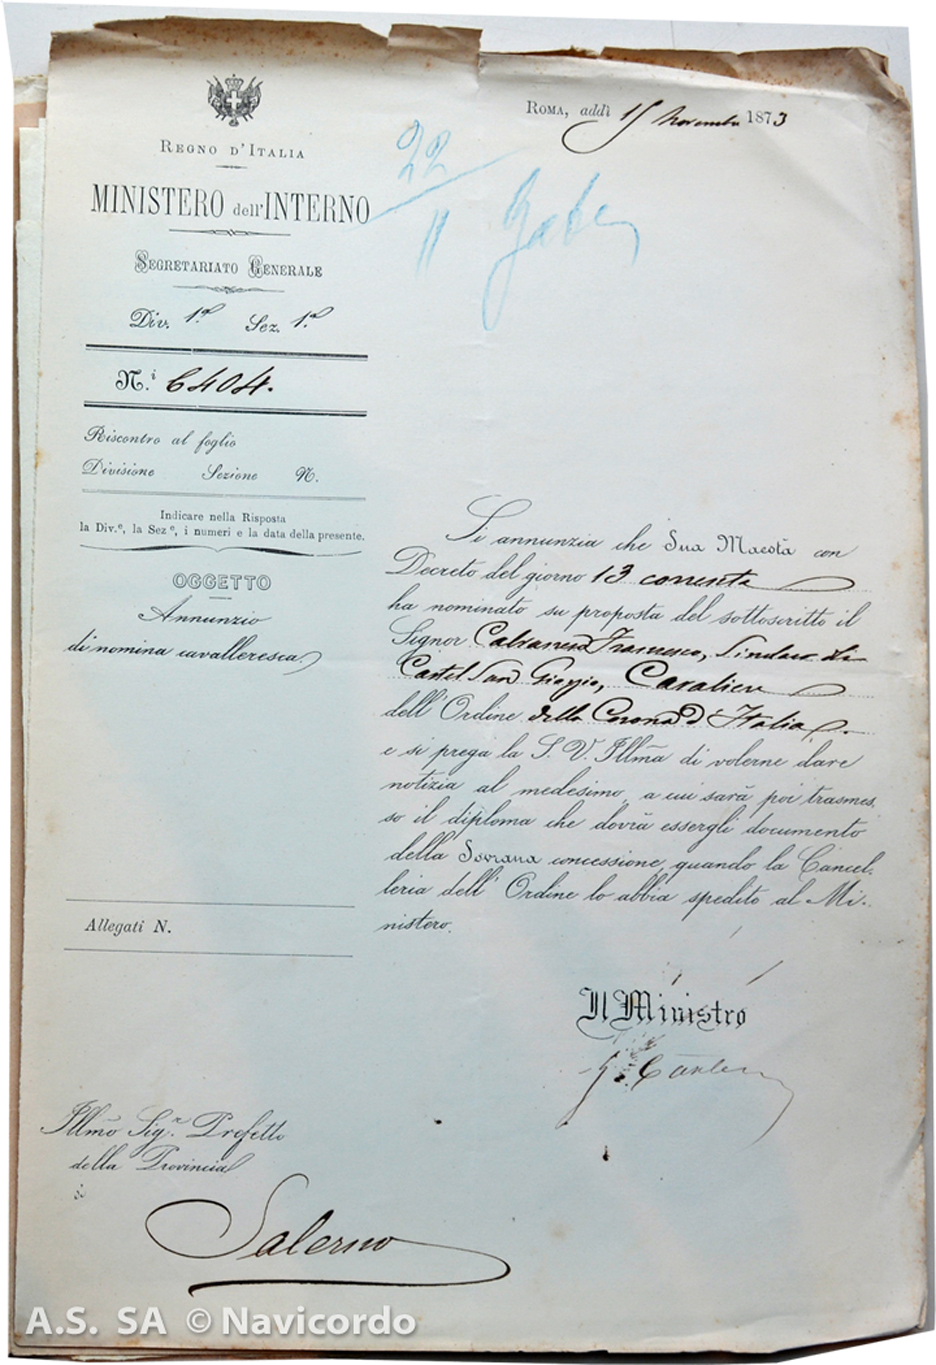 Regno d'Italia
MINISTERO dell'INTERNO
Segretariato Generale
Div. 1ª Sez. 1ª
N.i 6404.
Riscontro al foglio
Divisione Sezione N.
Indicare nella Risposta
la Div.e, la Sez.e, i numeri e la data della presente.
OGGETTO
Annunzio
di nomina cavalleresca
Allegati N.
Illmo Sig.r Prefetto
della Provincia
di
Salerno
Roma, addì 15 Novembre 1873
22
11 Gab
Si annunzia che Sua Maestà con
Decreto del giorno 13 corrente
ha nominato su proposta del sottoscritto il
Signor Francesco, Sindaco di
Castel San Giorgio, Cavaliere
dell'Ordine della Corona d'Italia.
e si prega la S. V. Illma di volerne dare
notizia al medesimo, a cui sarà poi trasmes
so il diploma che dovrà essergli documento
della Sovrana concessione, quando la Cancel-
leria dell'Ordine lo abbia spedito al Mi-
nistero.
Il Ministro
A.S. SA © Navicordo